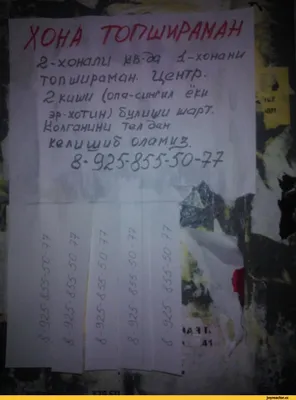 ХОНА ТОПШИРАМАН
2-хонали кв-да 1-хонани
топшираман. Центр.
2 киши (опа-сингил ёки
эр-хотин) булиши шарт.
Колганини тел дан
келишиб оламиз.
8-925-855-50-77
8 925 855-50-77
8 925-855-50-77
8-925-855 50 77
8 925 855-50 77
8 925 855-50 77